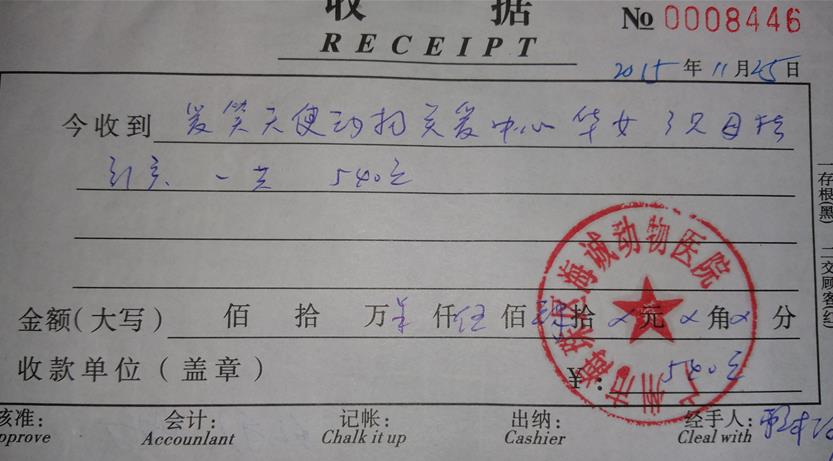 收 据
№ 0008446
RECEIPT
2015 年 11 月 25 日
今收到 爱笑天使动物关爱中心 华女 3只母
一共 540元
金额(大写) 佰 拾 万 仟 伍 佰 肆 拾 元 角 分
收款单位(盖章) ¥: 540元
广州市海珠区海诚动物医院
核准: 会计: 记帐: 出纳: 经手人:
pprove Accounlant Chalk it up Cashier Cleal with
一存根(黑) 二交顾客(红)